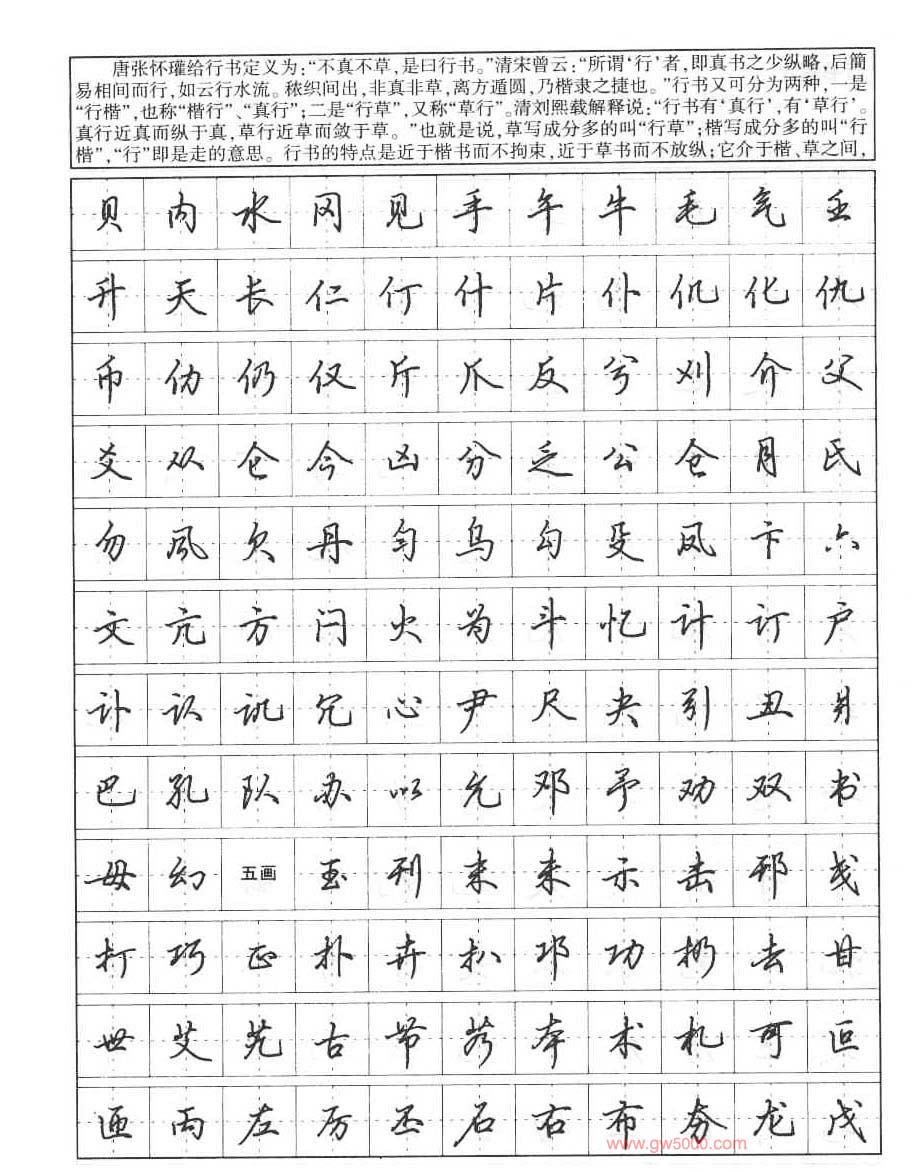 唐张怀瓘给行书定义为：“不真不草，是曰行书。”清宋曾云：“所谓‘行’者，即真书之少纵略，后简
易相间而行，如云行水流。秾织间出，非真非草，离方遁圆，乃楷隶之捷也。”行书又可分为两种，一是
“行楷”，也称“楷行”、“真行”；二是“行草”，又称“草行”。清刘熙载解释说：“行书有‘真行’，有‘草行’。
真行近真而纵于真，草行近草而敛于草。”也就是说，草写成分多的叫“行草”；楷写成分多的叫“行
楷”，“行”即是走的意思。行书的特点是近于楷书而不拘束，近于草书而不放纵；它介于楷、草之间，
贝 内 水 冈 见 手 午 牛 毛 气 壬
升 夭 长 仁 仃 什 片 仆 仉 化 仇
币 仂 仍 仅 斤 爪 反 兮 刈 介 父
爻 从 仑 今 凶 分 乏 公 仓 月 氏
勿 風 欠 丹 匀 乌 勾 殳 凤 卞 六
文 亢 方 闩 火 为 斗 忆 计 订 户
讣 认 讥 冗 心 尹 尺 夬 引 丑 爿
巴 孔 队 办 以 允 邓 予 劝 双 书
毋 幻 五画 玉 刊 末 未 示 击 邗 戋
打 巧 正 扑 卉 扒 邛 功 扔 去 甘
世 艾 艽 古 节 艿 本 术 札 可 叵
匝 丙 左 厉 丕 石 右 布 夯 龙 戊
www.gw5000.com